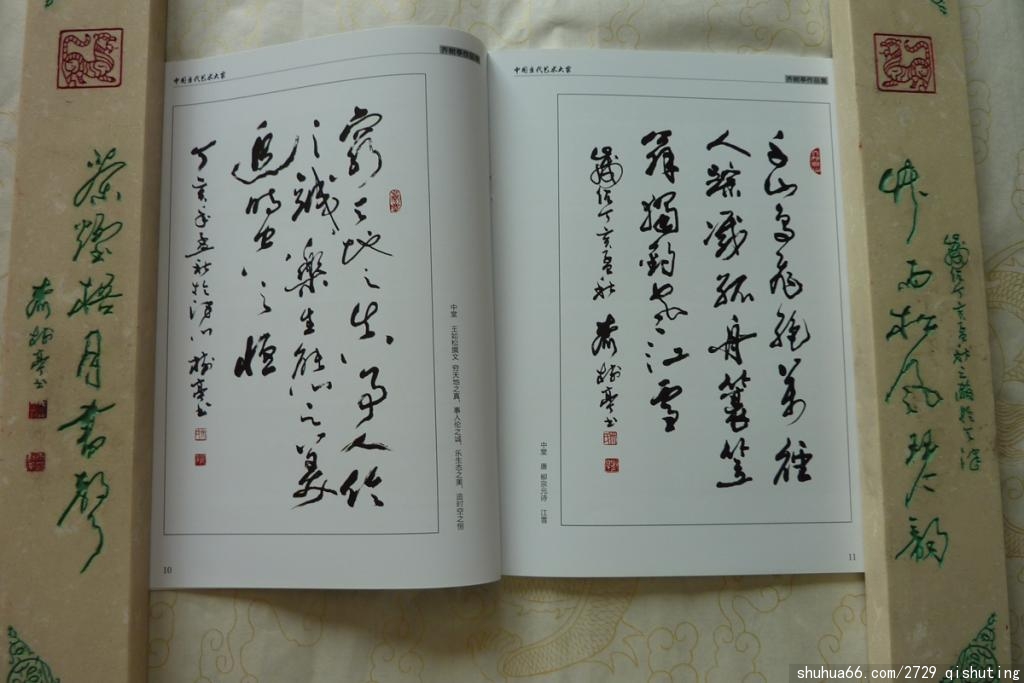 竹雨松風琴韻
茶煙梧月書聲
齊樹亭書
中国当代艺术大家
齐树亭作品集
窮天地之真事人倫
之誠樂生態之美
追時空之恒
丁亥年孟秋於津門樹亭书
中堂 王如松撰文 穷天地之真、事人伦之诚、乐生态之美、追时空之恒
10
中国当代艺术大家
齐树亭作品集
千山鳥飛絶萬徑
人踪滅孤舟蓑笠
翁獨釣寒江雪
歲在丁亥孟秋 齊樹亭书
中堂 唐 柳宗元诗 江雪
11
shuhua66.com/2729 qishuting